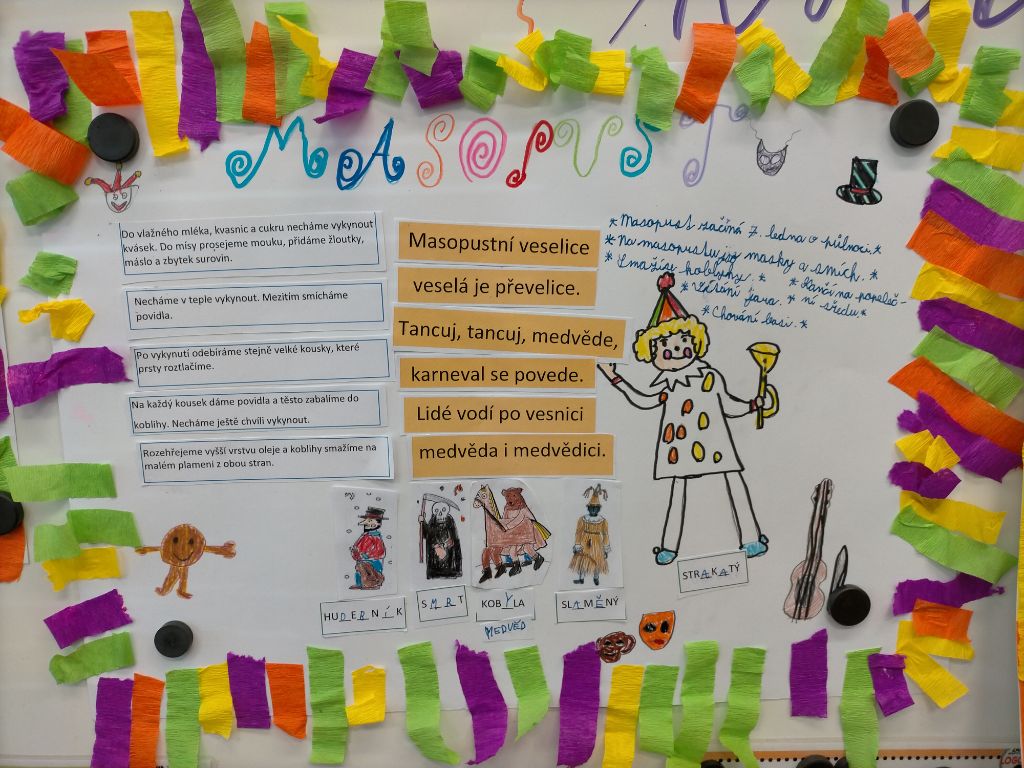 MASOPUST
Do vlažného mléka, kvasnic a cukru necháme vykynout
kvásek. Do mísy prosejeme mouku, přidáme žloutky,
máslo a zbytek surovin.
Necháme v teple vykynout. Mezitím smícháme
povidla.
Po vykynutí odebíráme stejně velké kousky, které
prsty roztlačíme.
Na každý kousek dáme povidla a těsto zabalíme do
koblihy. Necháme ještě chvíli vykynout.
Rozehřejeme vyšší vrstvu oleje a koblihy smažíme na
malém plameni z obou stran.
Masopustní veselice
veselá je převelice.
Tancuj, tancuj, medvěde,
karneval se povede.
Lidé vodí po vesnici
medvěda i medvědici.
* Masopust začíná 7. ledna o půlnoci. *
* Na masopustu jsou masky a smích. *
* Smažíse koblihy. * * Končí na popeleč-
* Vítání jara. * ní středu. *
* Chování basi. *
HUDERNÍK
SMRT
KOBYLA
MEDVĚD
SLAMĚNÝ
STRAKATÝ